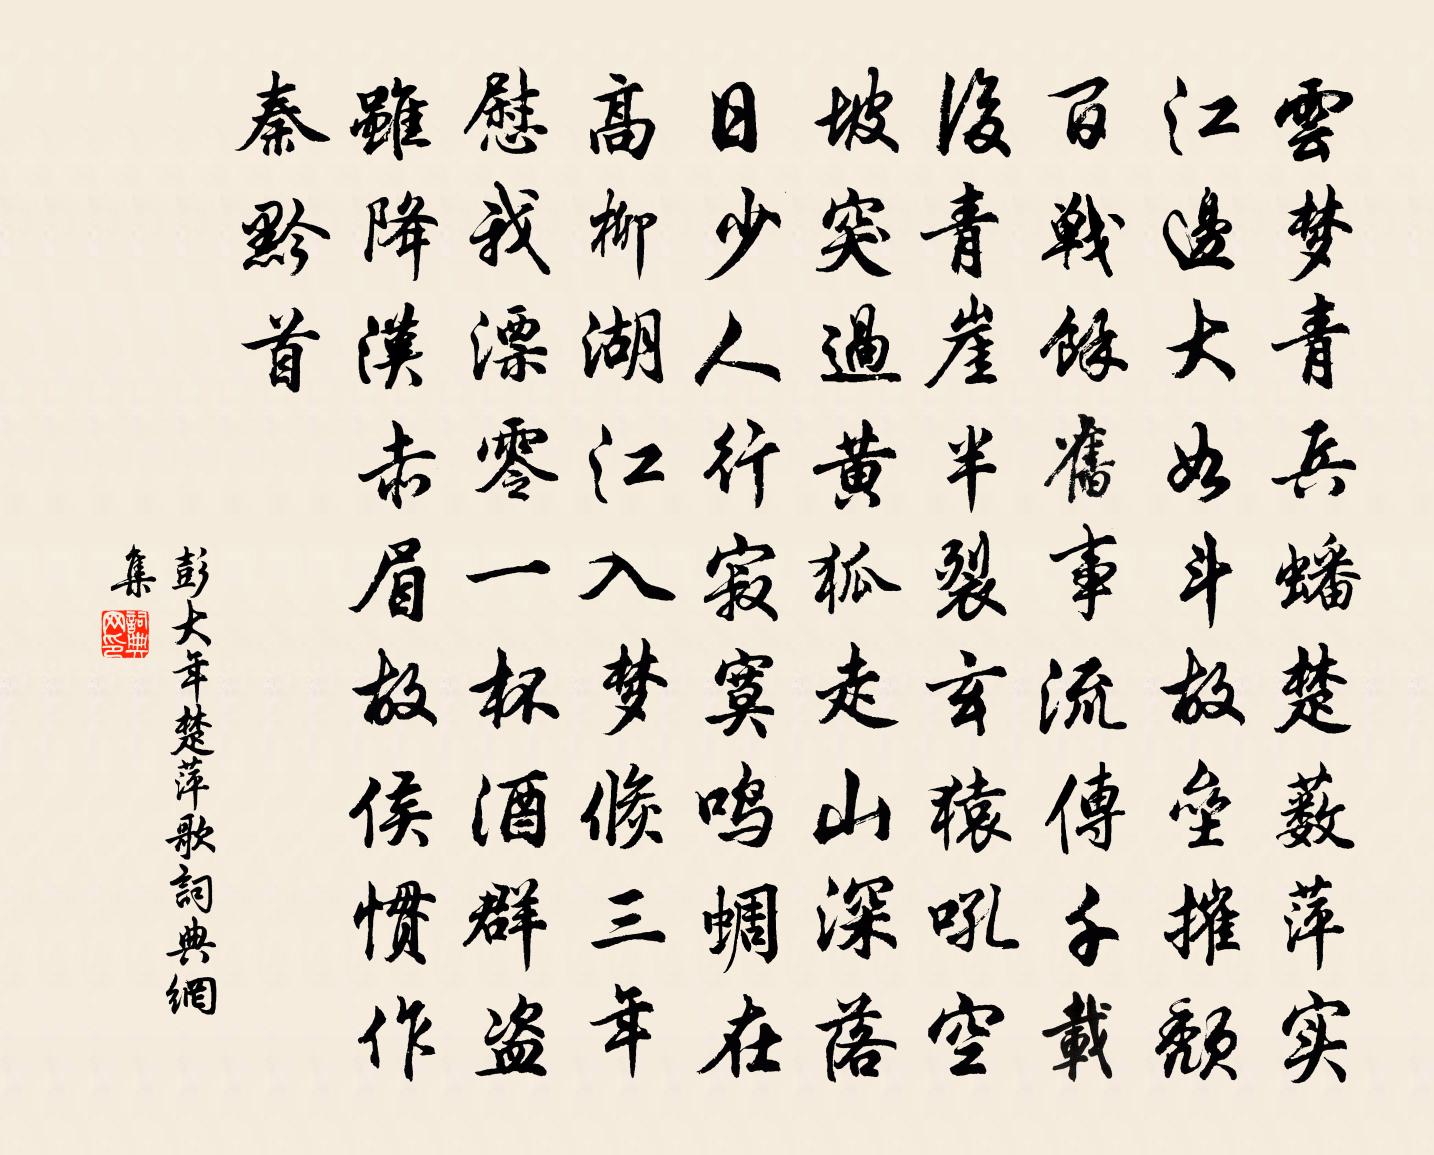 雲梦青兵蟠楚薮萍实
江邊大如斗故壘摧颓
百戦餘舊事流傳千載
後青崖半裂玄猿吼空
坡突過黄狐走山深落
日少人行寂寞鸣蜩在
高柳湖江入梦倐三年
慰我漂零一杯酒群盗
雖降漢赤眉故侯惯作
秦黔首
彭大年楚萍歌詞典網
集
詞典網印